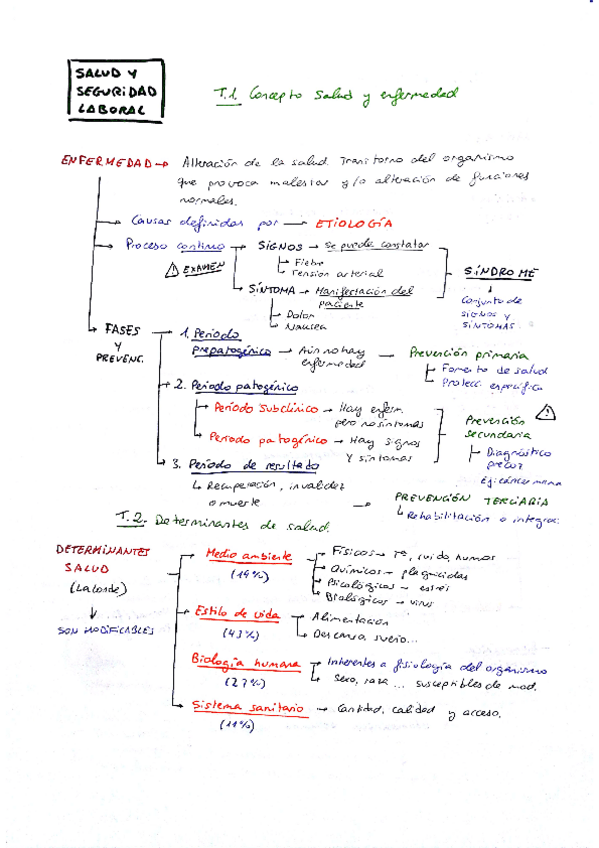 SALUD Y
SEGURIDAD
LABORAL
T.1. Concepto salud y enfermedad
ENFERMEDAD → Alteración de la salud. Transtorno del organismo
que provoca malestar y/o alteración de funciones
normales.
Causas definidas por — ETIOLOGÍA
Proceso continuo → SIGNOS → se puede constatar
⚠ EXAMEN
Fiebre
Tensión arterial
SÍNTOMA → Manifestación del
paciente
Dolor
Nausea
SÍNDROME
↓
Conjunto de
SIGNOS Y
SÍNTOMAS
FASES
Y
PREVENC.
1. Periodo
prepatogénico — Aún no hay
enfermedad
— Prevención primaria
Fomento de salud
Protecc. específica
2. Periodo patogénico
Periodo subclínico → Hay enferm.
pero no síntomas
Periodo patogénico → Hay signos
y síntomas
Prevención
secundaria
Diagnóstico
precoz
Ej: cáncer mama
3. Periodo de resultado
↳ Recuperación, invalidez
o muerte
→ PREVENCIÓN TERCIARIA
↳ Rehabilitación o integrac.
T.2. Determinantes de salud.
DETERMINANTES
SALUD
(Lalonde)
↓
SON MODIFICABLES
Medio ambiente
(19%)
Físicos → Tª, ruido, humos
Químicos → plaguicidas
Psicológicos → estrés
Biológicos → virus
Estilo de vida
(43%)
Alimentación
Descanso, sueño...
Biología humana
(27%)
Inherentes a fisiología del organismo
Sexo, raza ... susceptibles de mod.
Sistema sanitario → Cantidad, calidad y acceso.
(11%)